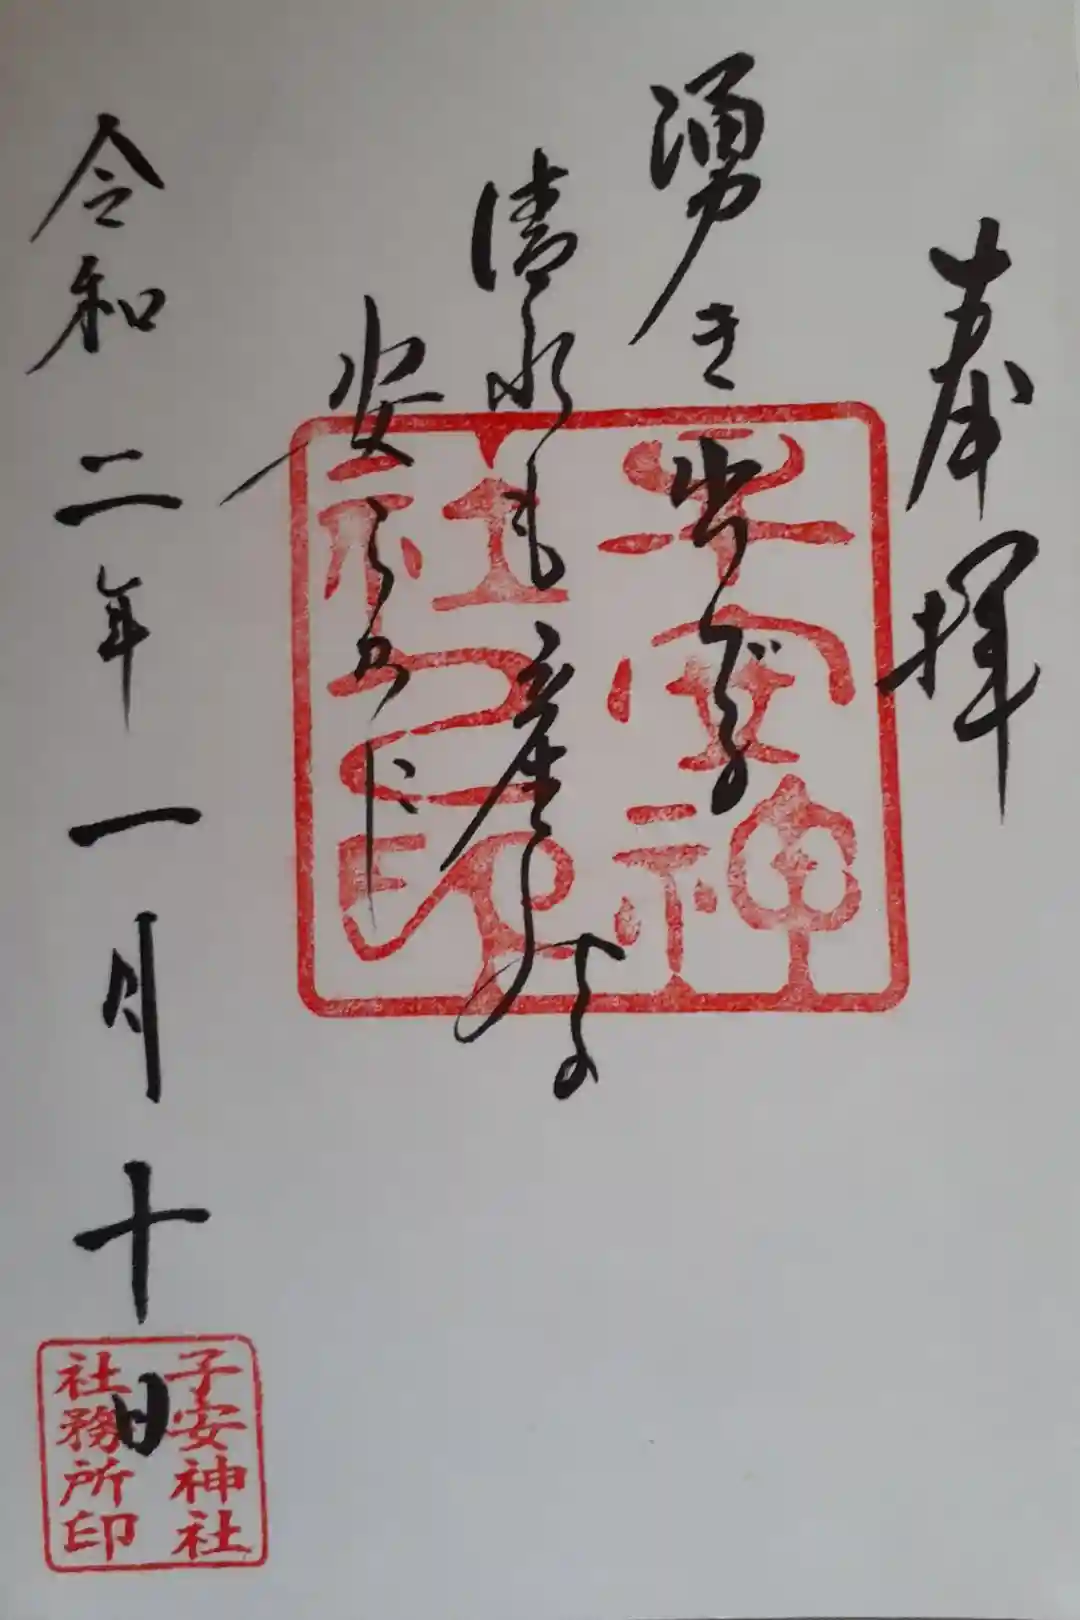 奉拝
湧き出づる
清水も産の
安らかに
令和二年一月十日
子安神社之印
子安神社
社務所印